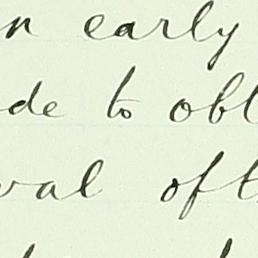 n early
de to obt
val oft